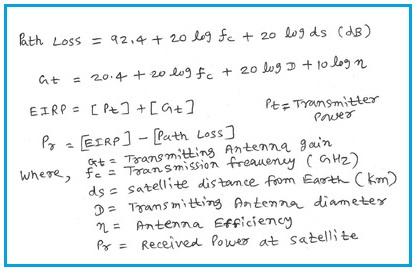 Path Loss = 92.4 + 20 log fc + 20 log ds (dB)
Gt = 20.4 + 20 log fc + 20 log D + 10 log η
EIRP = [Pt] + [Gt]
Pt = Transmitter Power
Pr = [EIRP] - [Path Loss]
Where, Gt = Transmitting Antenna gain
fc = Transmission frequency (GHz)
ds = satellite distance from Earth (Km)
D = Transmitting Antenna diameter
η = Antenna Efficiency
Pr = Received Power at satellite